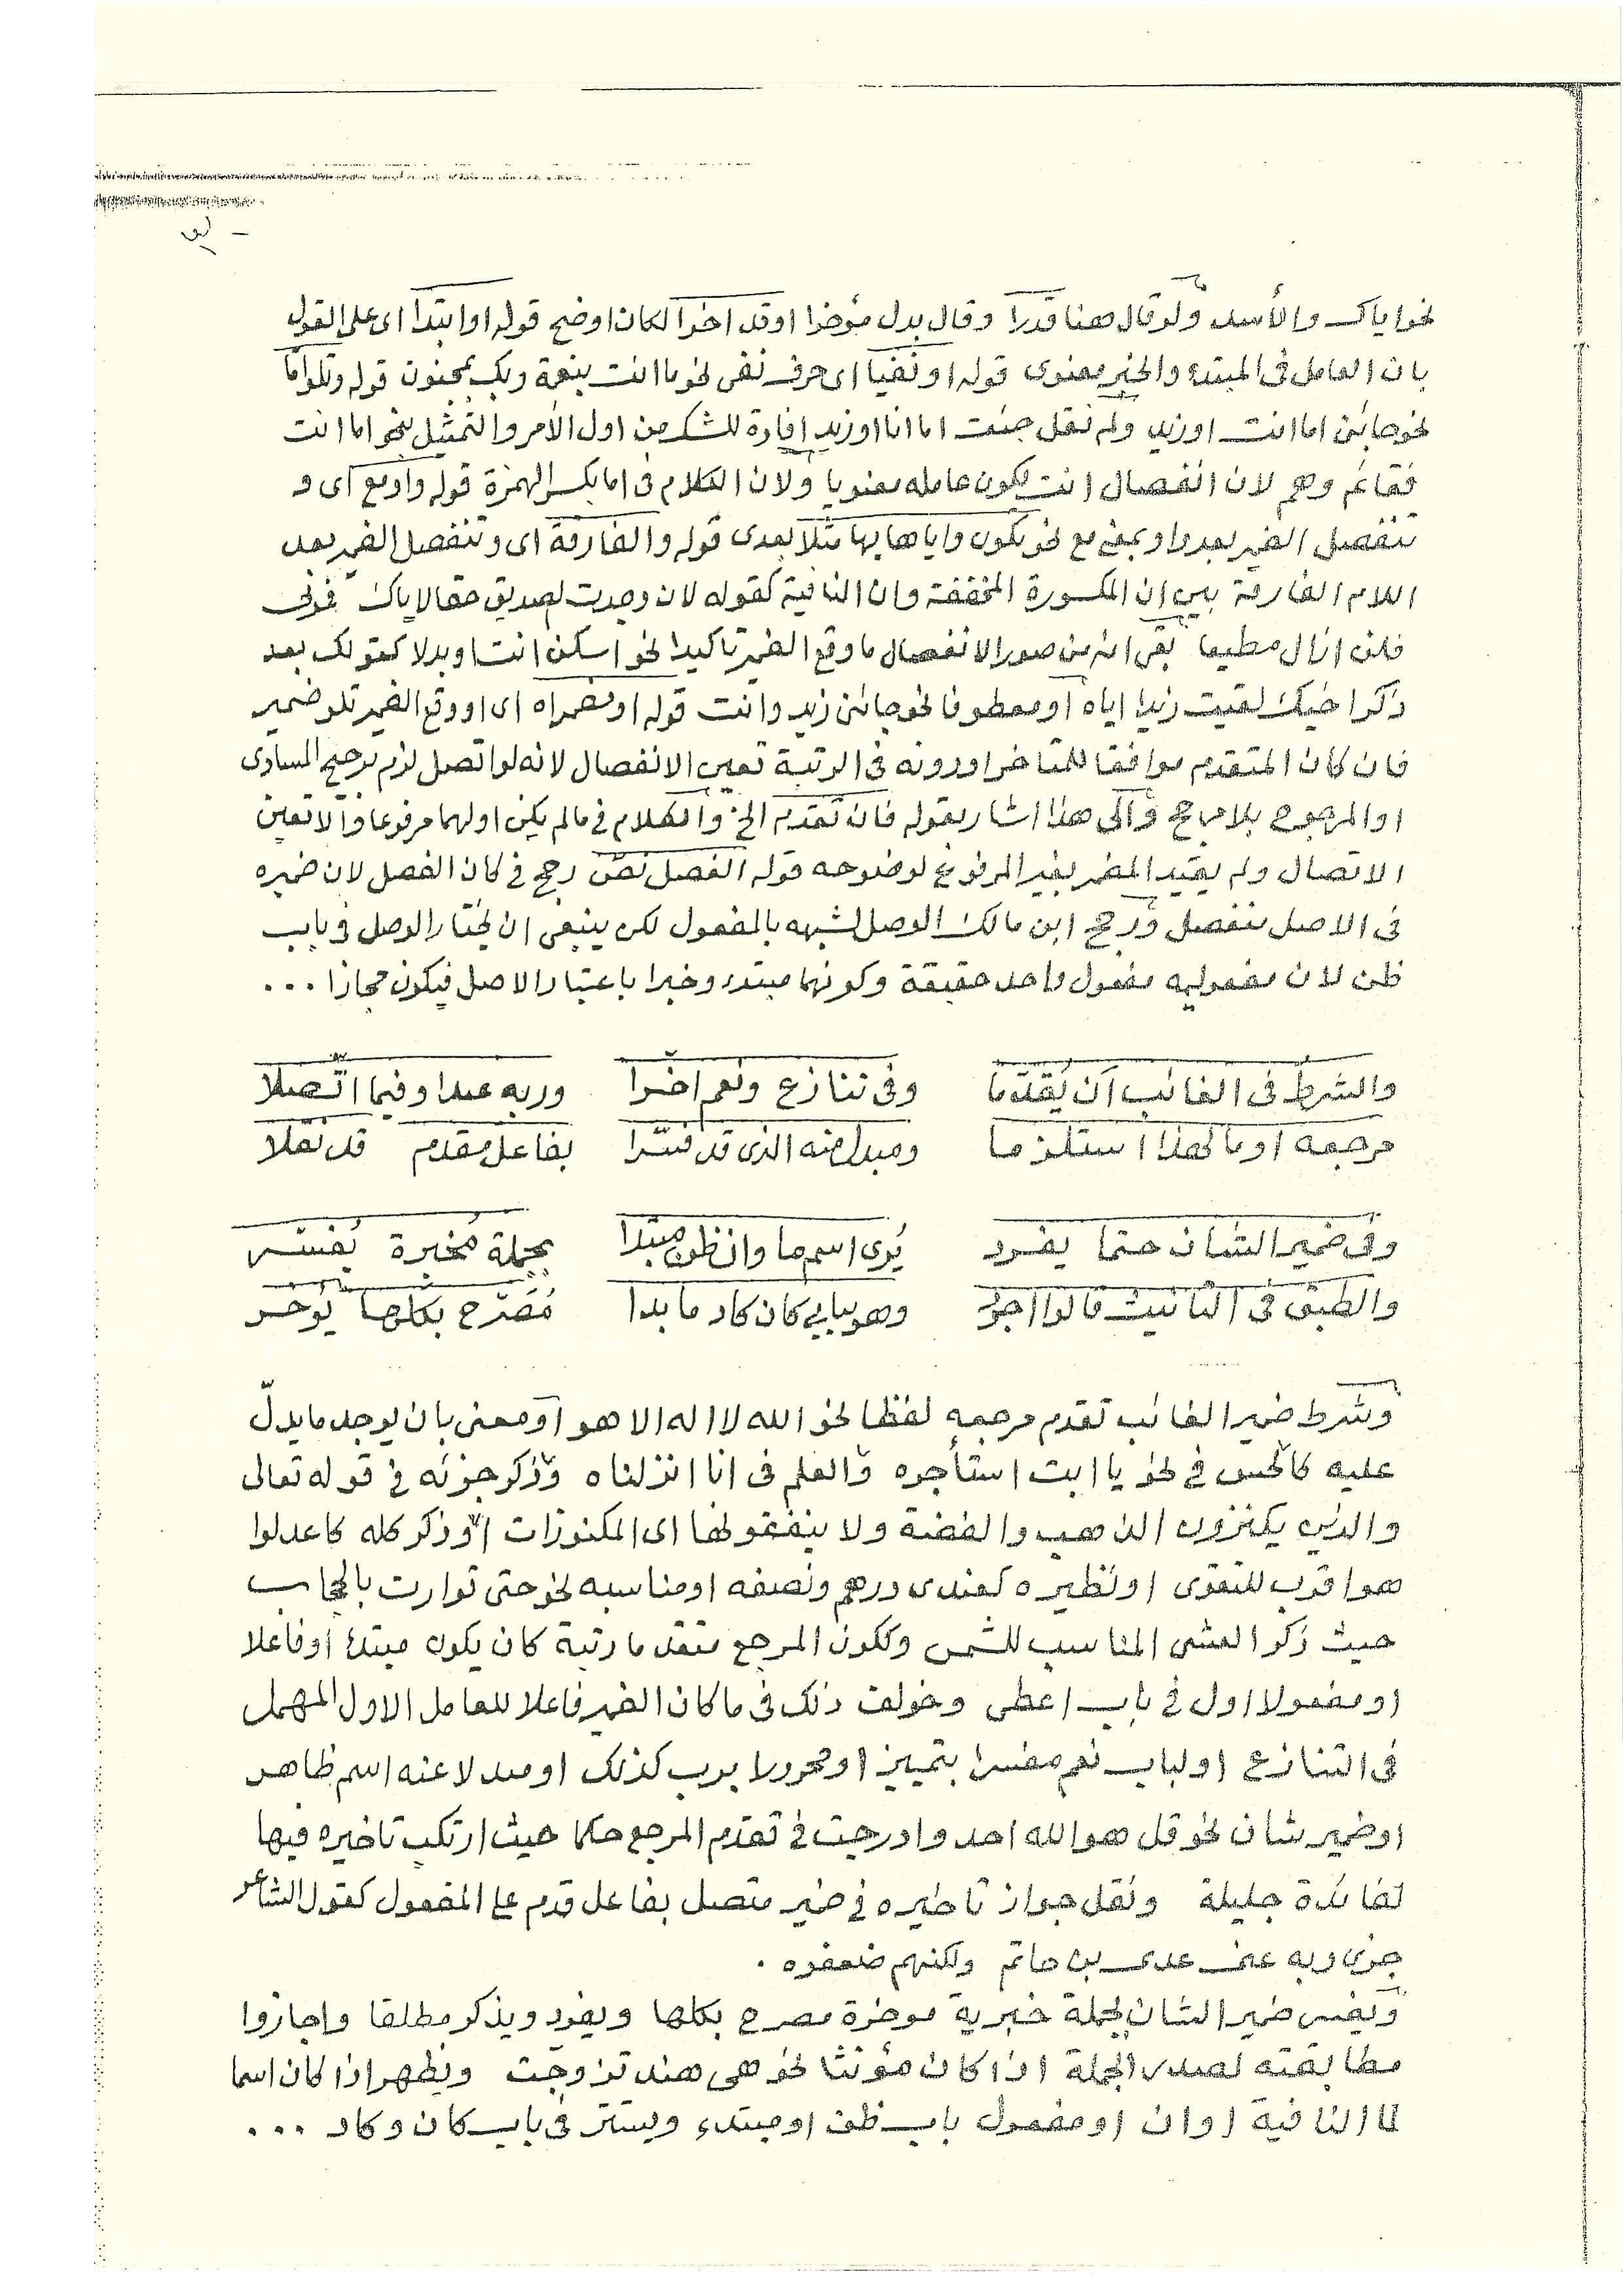 نحو اياك والأسد ولو قال هنا قدرا وقال بدل مؤخرا او قد اخرا لكان اوضح قوله او ابتدا اى على القول
بان العامل فى المبتدء والخبر معنوى قوله او نفيا اى حرف نفى نحو ما انت بنعمة ربك بمجنون قوله وتلو امّا
نحو جائنى اما انت او زيد ولم نقل جئت اما انا او زيد افادة للشك من اول الأمر والتمثيل بنحو اما انت
فقائم وهم لان انفصال انت لكون عامله معنويا ولان الكلام فى اما بكسر الهمزة قوله واو مع اى و
تنفصل الضمير بعد واو بمعنى مع نحو تكون واياها بها مثلا بعدى قوله والفارقة اى وتنفصل الضمير بعد
اللام الفارقة بين ان المكسورة المخففة وان النافية كقوله لان وجدت لصديق حقا لاياك فمرنى
فلن ازال مطيعا بقى انه من صور الانفصال ما وقع الضمير تاكيدا نحو اسكن انت او بدلا كقولك بعد
ذكر اخيك لقيت زيدا اياه او معطوفا نحو جائنى زيد وانت قوله او مضمرا ه اى او وقع الضمير تلو ضمير
فان كان المتقدم موافقا للمتاخر او دونه فى الرتبة تعين الانفصال لانه لو اتصل لزم ترجيح المساوى
او المرجوح بلا مرجح والى هذا اشار بقوله فان تقدم الخ والكلام فى مالم يكن اولهما مرفوعا والا تعين
الاتصال ولم يقيد المضمر بغير المرفوع لوضوحه قوله الفصل نصّ رجح فى كان الفصل لان ضميره
فى الاصل منفصل ورجح ابن مالك الوصل لشبهه بالمفعول لكن ينبغى ان يختار الوصل فى باب
ظن لان مفعوليه مفعول واحد حقيقة وكونهما مبتدء وخبرا باعتبار الاصل فيكون مجازا ...
والشرط فى الغائب ان يُقدّما وفى تنازع ونعم اخّرا وربه عبدا وفيما اتّصلا
مرجعه او ما لهذا استلزما ومبدل منه الذى قد فسّرا بفاعل مقدم قد نقلا
وفى ضمير الشان حتما يفرد يُرى اسم ما وان ظن مبتدا بجملة مُخبرة يُفسّر
والطبق فى التانيث قالوا اجود وهو ببابى كان كاد ما بدا مُصَرّح بكلها يُؤخّر
وشرط ضمير الغائب تقدم مرجعه لفظا نحو الله لا اله الا هو او معنى بان يوجد ما يدلّ
عليه كالحس فى نحو يا ابت استأجره والعلم فى انا انزلناه وذكر جزئه فى قوله تعالى
والذين يكنزون الذهب والفضة ولا ينفقونها اى المكنوزات او ذكر كله كاعدلوا
هو اقرب للتقوى او نظيره كعندى درهم ونصفه او مناسبه نحو حتى توارت بالحجاب
حيث ذكر العشى المناسب للشمس وككون المرجع متقدما رتبة كان يكون مبتدأ او فاعلا
او مفعولا اول فى باب اعطى وخولف ذلك فى ما كان الضمير فاعلا للعامل الاول المهمل
فى التنازع او لباب نعم مفسرا بتمييز او مجرورا برب كذلك او مبدلا عنه اسم ظاهر
او ضمير شان نحو قل هو الله احد وادرجت فى تقدم المرجع حكما حيث ارتكب تاخيره فيها
لفائدة جليلة ونقل جواز تاخيره فى ضمير متصل بفاعل قدم على المفعول كقول الشاعر
جزى ربه عنى عدى بن حاتم ولكنهم ضعفوه .
ويفسر ضمير الشان بجملة خبرية مؤخرة مصرح بكلها ويفرد ويذكر مطلقا واجازوا
مطابقته لصدر الجملة اذا كان مؤنثا نحو هى هند تزوجت ويظهر اذا كان اسما
لما النافية او ان او مفعول باب ظن او مبتدء ويستتر فى باب كان وكاد ...